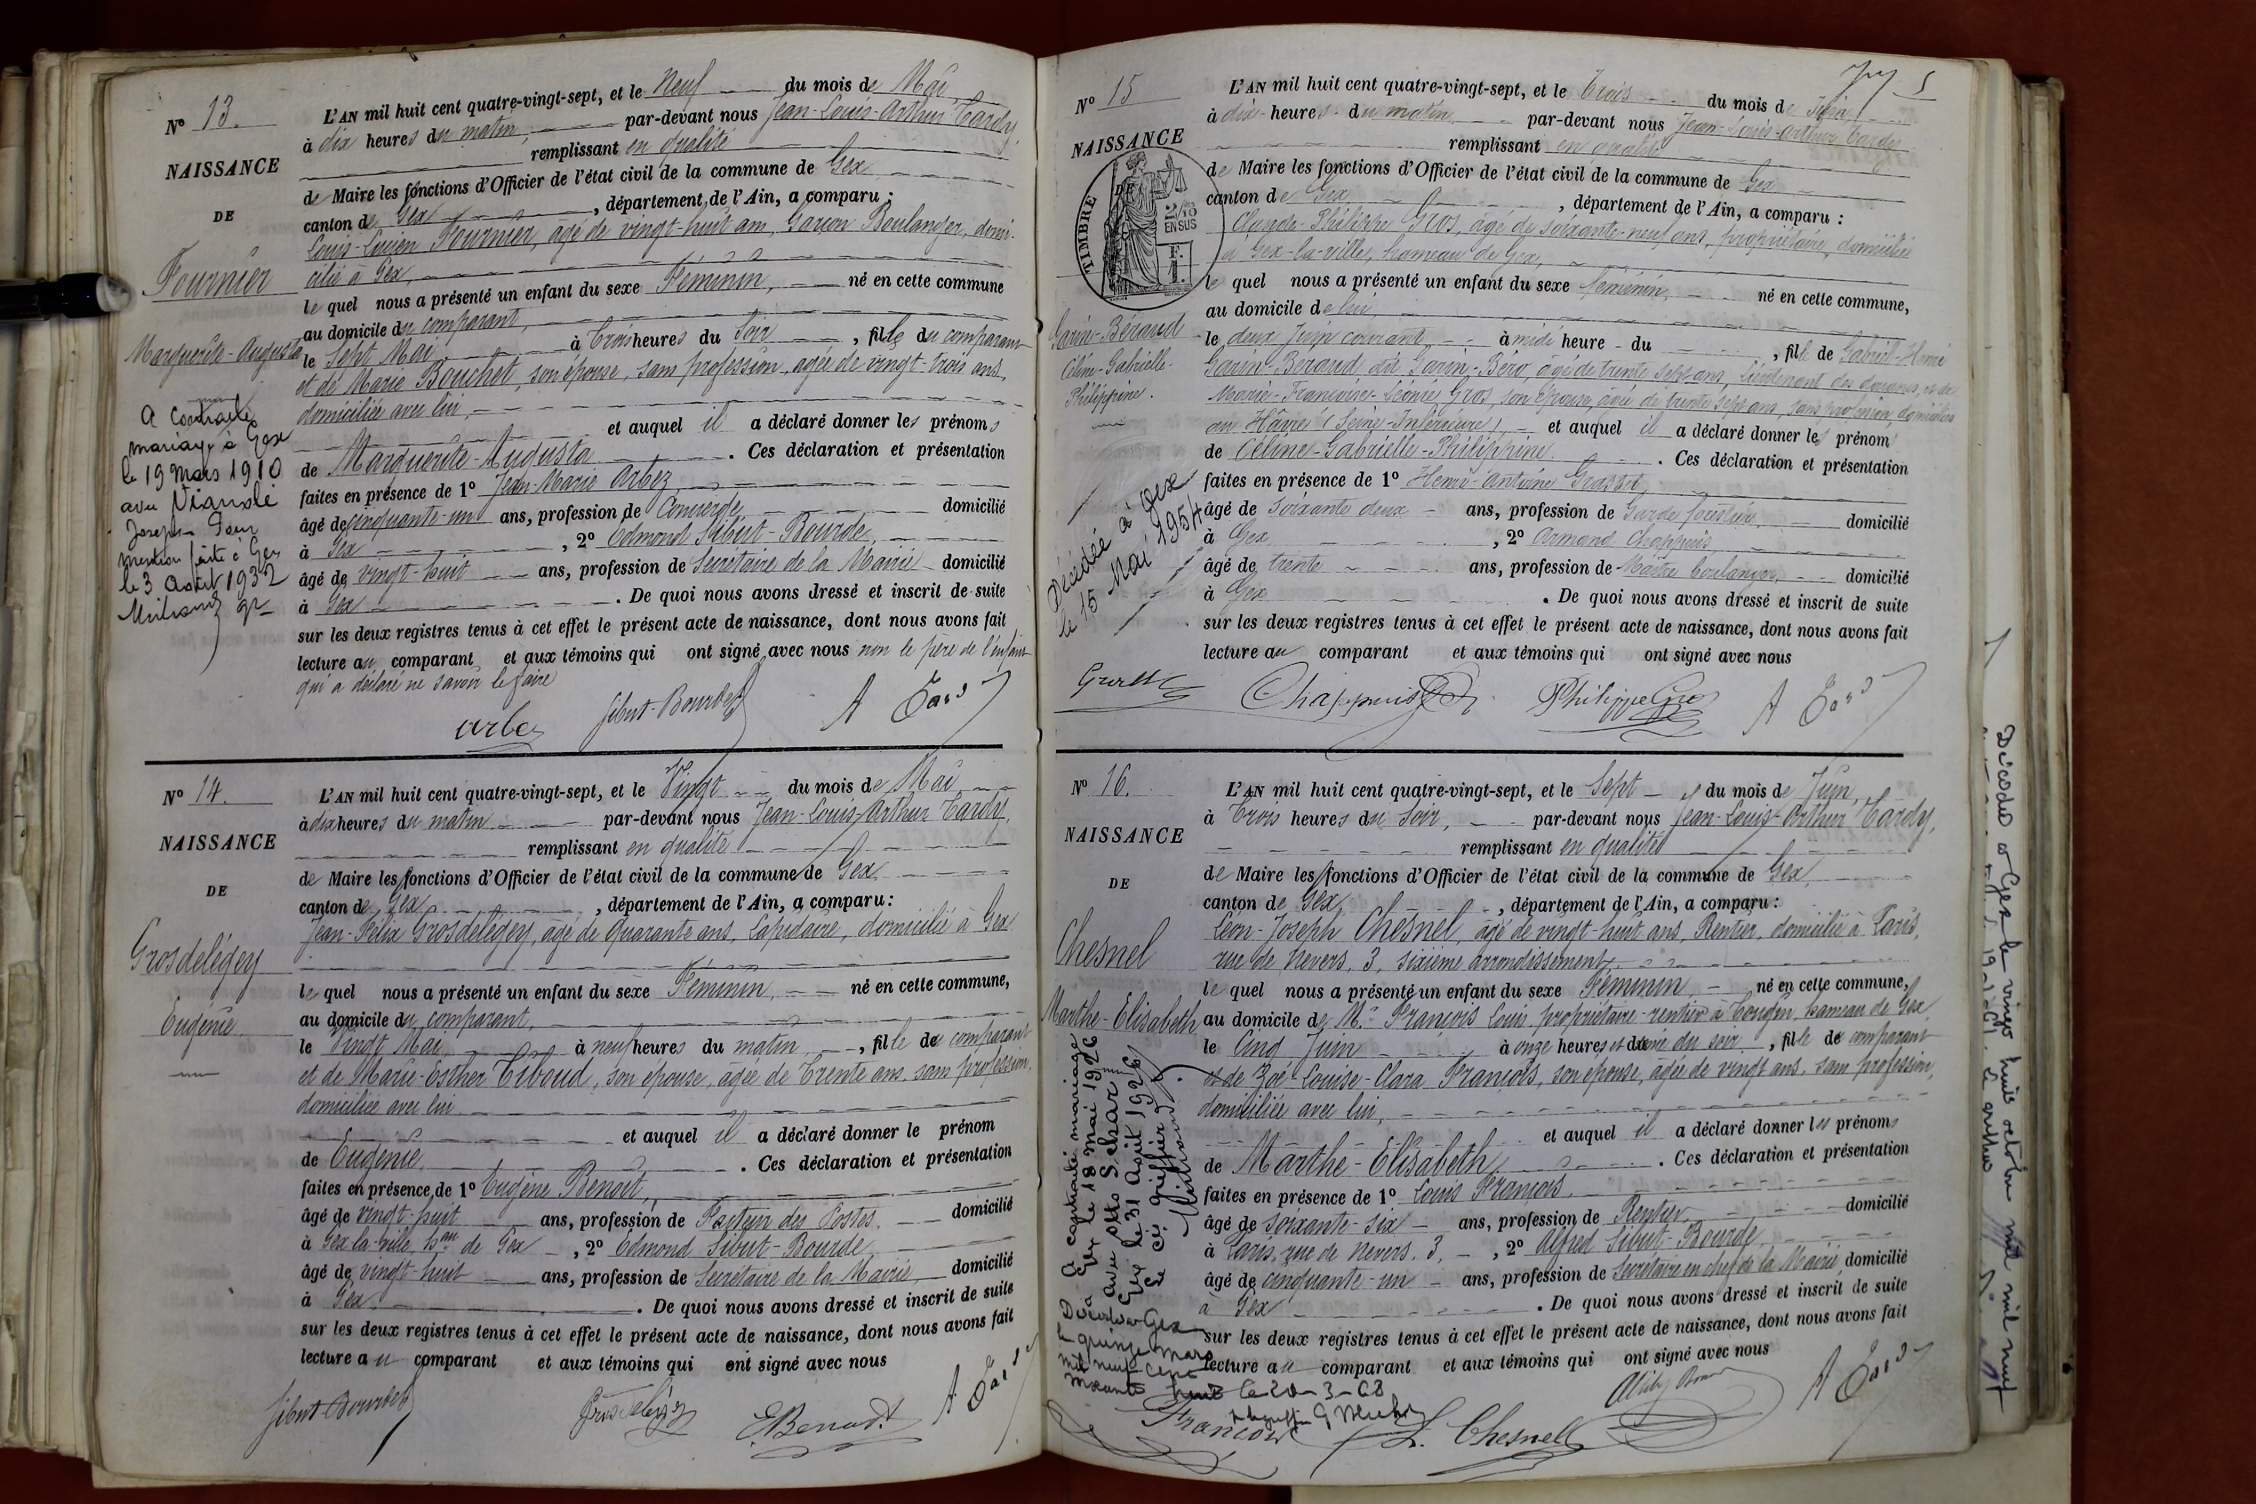 N° 13.
NAISSANCE
DE
Fournier
Marguerite-Augusta
a contracté
mariage à Gex
le 19 mars 1910
avec
Joseph
mention faite à Gex
le 3 août 1932
L'AN mil huit cent quatre-vingt-sept, et le Neuf du mois de Mai,
à dix heures du matin, par-devant nous Jean-Louis-Arthur Tardy,
remplissant en qualité
de Maire les fonctions d'Officier de l'état civil de la commune de Gex
canton de Gex, département de l'Ain, a comparu :
Louis-Lucien Fournier, âgé de vingt-huit ans, Garçon Boulanger, domi-
cilié à Gex,
lequel nous a présenté un enfant du sexe Féminin, né en cette commune
au domicile du comparant,
le Sept Mai à trois heures du Soir, fille du comparant
et de Marie Bouchet, son épouse, sans profession, agée de vingt-trois ans,
domiciliée avec lui,
et auquel il a déclaré donner les prénoms
de Marguerite-Augusta. Ces déclaration et présentation
faites en présence de 1° Jean-Marie Arbez
âgé de cinquante-un ans, profession de Concierge, domicilié
à Gex, 2° Edmond Sibut-Bourde,
âgé de vingt-huit ans, profession de Secrétaire de la Mairie domicilié
à Gex. De quoi nous avons dressé et inscrit de suite
sur les deux registres tenus à cet effet le présent acte de naissance, dont nous avons fait
lecture au comparant et aux témoins qui ont signé avec nous non le père de l'enfant
qui a déclaré ne savoir le faire
arbez Sibut-Bourde A Tardy
N° 14.
NAISSANCE
DE
Grosdelégey
Eugénie
L'AN mil huit cent quatre-vingt-sept, et le Vingt du mois de Mai,
à dix heures du matin par-devant nous Jean-Louis-Arthur Tardy,
remplissant en qualité
de Maire les fonctions d'Officier de l'état civil de la commune de Gex
canton de Gex, département de l'Ain, a comparu :
Jean-Félix Grosdelégey, âgé de Quarante ans, Lapidaire, domicilié à Gex
lequel nous a présenté un enfant du sexe Féminin, né en cette commune,
au domicile du comparant,
le Vingt Mai, à neuf heures du matin, fille du comparant
et de Marie-Esther Tiboud, son épouse, agée de Trente ans, sans profession,
domiciliée avec lui
et auquel il a déclaré donner le prénom
de Eugénie. Ces déclaration et présentation
faites en présence de 1° Eugène Benoit,
âgé de vingt-huit ans, profession de Facteur des Postes, domicilié
à Gex-la-ville, hau de Gex, 2° Edmond Sibut-Bourde,
âgé de vingt-huit ans, profession de Secrétaire de la Mairie, domicilié
à Gex. De quoi nous avons dressé et inscrit de suite
sur les deux registres tenus à cet effet le présent acte de naissance, dont nous avons fait
lecture au comparant et aux témoins qui ont signé avec nous
Sibut-Bourde Grosdelégey E. Benoit A Tardy
5
N° 15
NAISSANCE
DE
TIMBRE
2/10
EN SUS
F.
1.
Garin-Béraud
Céline-Gabrielle-
Philippine.
Décédée à Gex
le 15 Mai 1954
L'AN mil huit cent quatre-vingt-sept, et le Trois du mois de Juin
à dix heures du matin, par-devant nous Jean-Louis-Arthur Tardy
remplissant en qualité
de Maire les fonctions d'Officier de l'état civil de la commune de Gex
canton de Gex, département de l'Ain, a comparu :
Claude-Philippe Gros, âgé de soixante-neuf ans, propriétaire, domicilié
à Gex-la-ville, hameau de Gex,
lequel nous a présenté un enfant du sexe féminin, né en cette commune,
au domicile de lui,
le deux Juin courant, à midi heure du, fille de Gabriel-Henri
Garin-Béraud dit Garin-Béro, âgé de trente sept ans, Lieutenant des douanes, et de
Marie-Françoise-Léonie Gros, son épouse, agée de trente sept ans, sans profession, domiciliés
au Hâvre (Seine-Inférieure), et auquel il a déclaré donner les prénom
de Céline-Gabrielle-Philippine. Ces déclaration et présentation
faites en présence de 1° Henri-Antoine Grasset
âgé de Soixante deux ans, profession de Garde forestier, domicilié
à Gex, 2° Armand Chappuis
âgé de trente ans, profession de Maître boulanger, domicilié
à Gex. De quoi nous avons dressé et inscrit de suite
sur les deux registres tenus à cet effet le présent acte de naissance, dont nous avons fait
lecture au comparant et aux témoins qui ont signé avec nous
Chappuis Philippe Gros A Tardy
N° 16.
NAISSANCE
DE
Chesnel
Marthe-Elisabeth
a contracté mariage
à Gex le 18 mai 1926
avec Otto Schar
Gex le 31 août 1926
Le greffier
Décédée à Gex
le quinze mars
mil neuf cent
soixante huit le 20-3-68
L'AN mil huit cent quatre-vingt-sept, et le Sept du mois de Juin,
à Trois heures du Soir, par-devant nous Jean-Louis-Arthur Tardy,
remplissant en qualité
de Maire les fonctions d'Officier de l'état civil de la commune de Gex,
canton de Gex, département de l'Ain, a comparu :
Léon-Joseph Chesnel, âgé de vingt-huit ans, Rentier, domicilié à Paris,
rue de Nevers, 3, sixième arrondissement,
lequel nous a présenté un enfant du sexe Féminin, né en cette commune,
au domicile de Mr François Louis propriétaire-rentier à Tougin, hameau de Gex
le Cinq Juin à onze heures et demie du soir, fille de comparant
et de Zoé-Louise-Clara François, son épouse, agée de vingt ans, sans profession,
domiciliée avec lui,
et auquel il a déclaré donner les prénoms
de Marthe-Elisabeth. Ces déclaration et présentation
faites en présence de 1° Louis François,
âgé de soixante-six ans, profession de Rentier domicilié
à Paris, rue de Nevers. 3, 2° Alfred Sibut-Bourde,
âgé de cinquante-un ans, profession de Secrétaire en chef de la Mairie domicilié
à Gex. De quoi nous avons dressé et inscrit de suite
sur les deux registres tenus à cet effet le présent acte de naissance, dont nous avons fait
lecture au comparant et aux témoins qui ont signé avec nous
François L. Chesnel A Tardy
Décédée à Gex le vingt huit octobre mil neuf